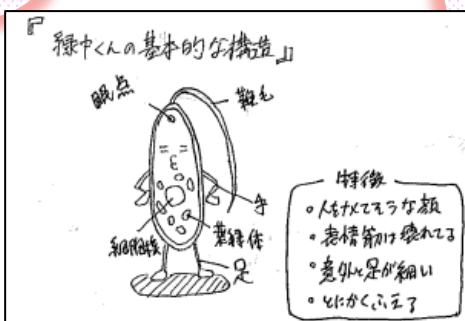 『緑中くんの基本的な構造』
眼点
鞭毛
手
細胞核
葉緑体
足
特徴
・人をナメてそうな顔
・表情筋は壊れてる
・意外と足が細い
・とにかくふえる